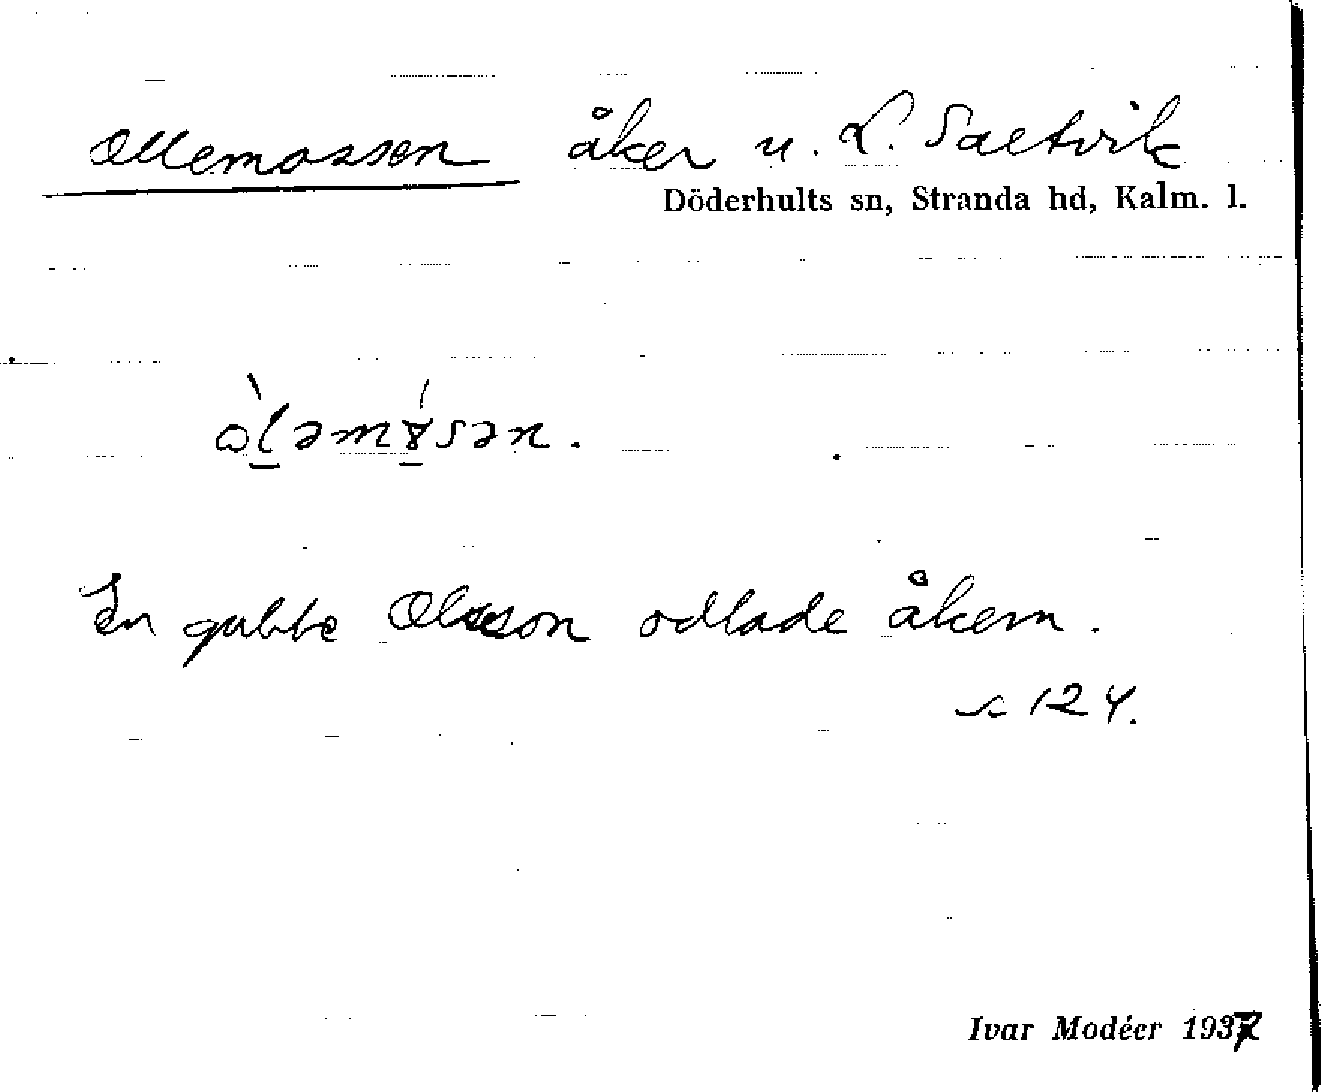 Ollemossen åker u. L. Saltvik
Döderhults sn, Stranda hd, Kalm. l.
En gubbe Olsson odlade åkern.
s 124.
Ivar Modéer 1937